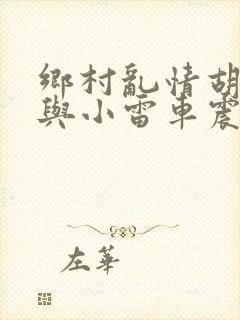 鄉村亂情胡
與小雷車震
左華